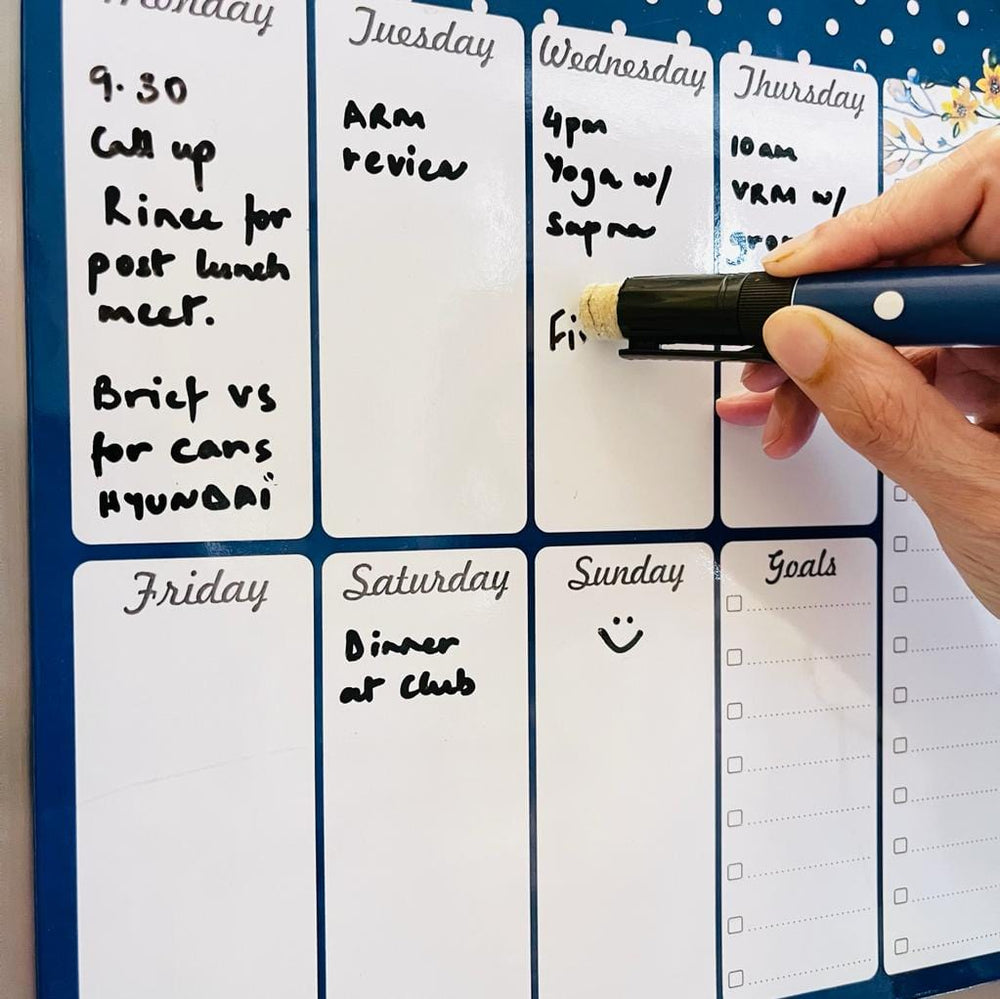 Monday
9.30
Call up
Rince for
post lunch
meet.
Brief vs
for cars
HYUNDAI
Tuesday
ARM
review
Wednesday
4pm
Yoga w/
Sapna
Thursday
10am
VRM w/
Friday
Saturday
Dinner
at Club
Sunday
Goals